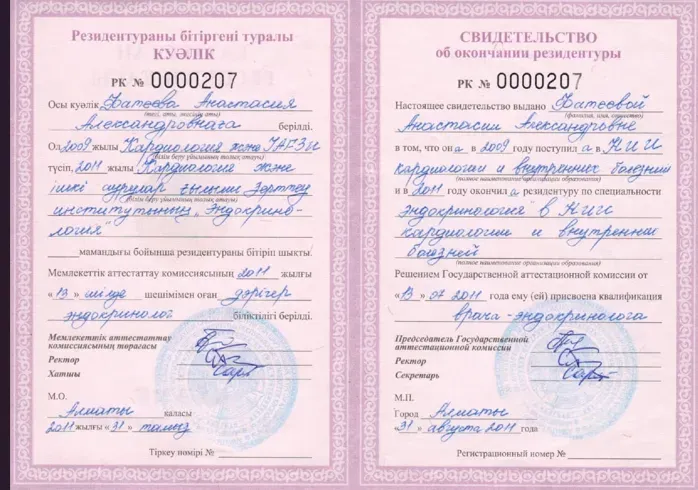 Резидентураны бітіргені туралы
КУӘЛІК
РК № 0000207
Осы куәлік Фатеева Анастасия
(тегі, аты, әкесінің аты)
Александровнаға берілді.
Ол 2009 жылы Кардиология және ІАҒЗИ
(білім беру ұйымының толық атауы)
түсіп, 2011 жылы Кардиология және
ішкі аурулар ғылыми зерттеу
(білім беру ұйымының толық атауы)
институтының "Эндокрино-
логия"
мамандығы бойынша резидентураны бітіріп шықты.
Мемлекеттік аттестаттау комиссиясының 2011 жылғы
«13» шілде шешімімен оған дәрігер
эндокринолог біліктілігі берілді.
Мемлекеттік аттестаттау
комиссиясының төрағасы
Ректор
Хатшы
М.О.
Алматы қаласы
2011 жылғы «31» тамыз
Тіркеу нөмірі №
СВИДЕТЕЛЬСТВО
об окончании резидентуры
РК № 0000207
Настоящее свидетельство выдано Фатеевой
(фамилия, имя, отчество)
Анастасии Александровне
в том, что она в 2009 году поступила в НИИ
кардиологии и внутренних болезней
(полное наименование организации образования)
и в 2011 году окончила резидентуру по специальности
"эндокринология" в НИИ
кардиологии и внутренних
болезней
(полное наименование организации образования)
Решением Государственной аттестационной комиссии от
«13» 07 2011 года ему (ей) присвоена квалификация
врача-эндокринолога
Председатель Государственной
аттестационной комиссии
Ректор
Секретарь
М.П.
Город Алматы
«31» августа 2011 года
Регистрационный номер №